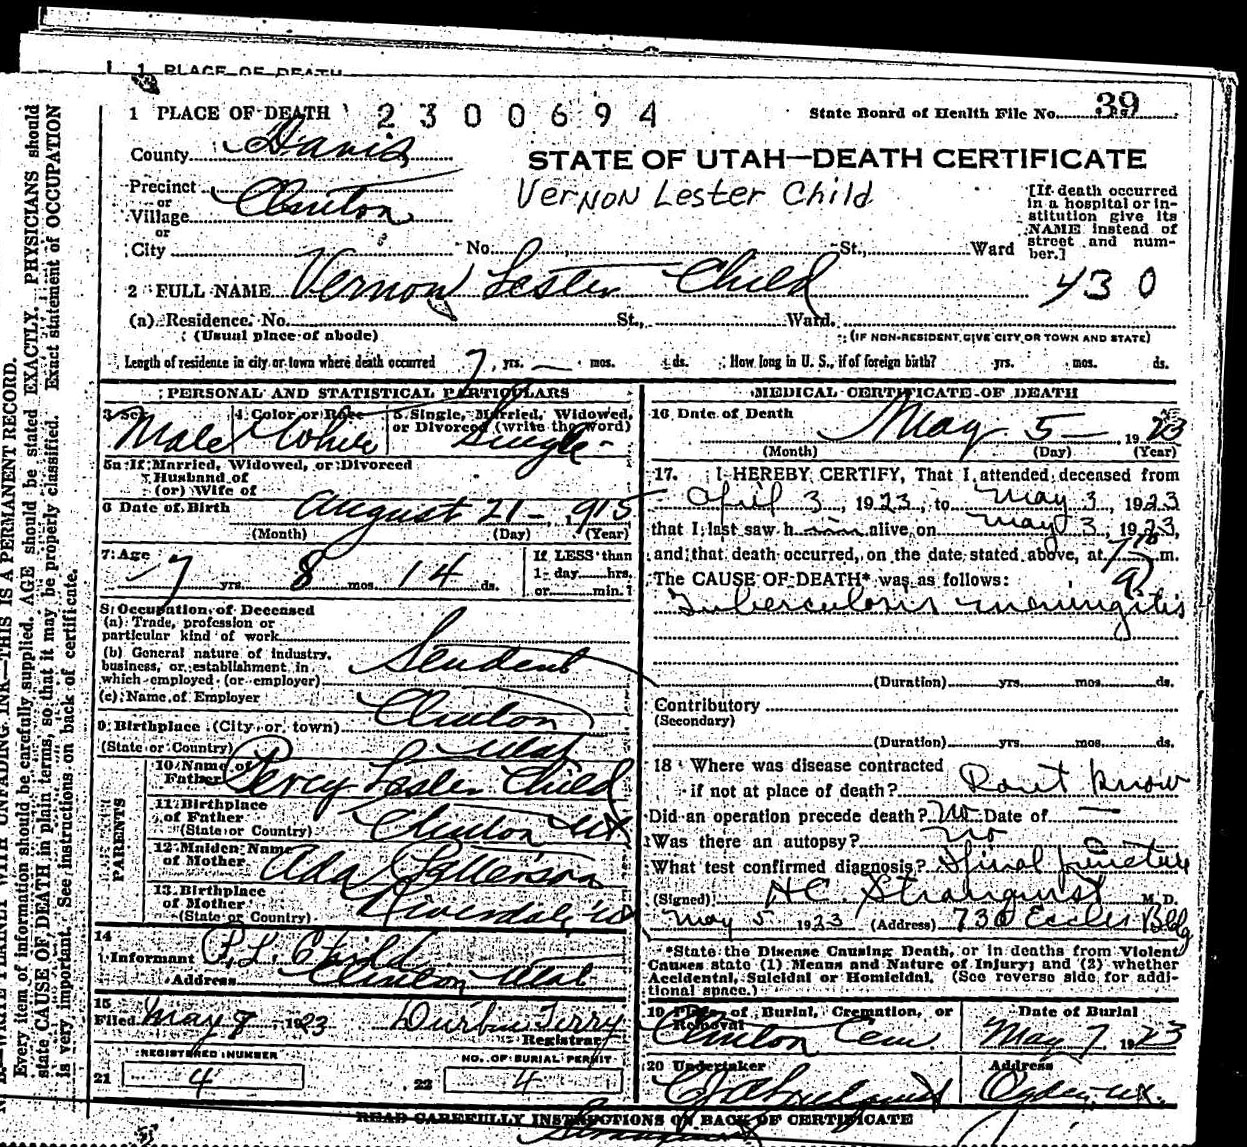 1 PLACE OF DEATH
1 PLACE OF DEATH 2 3 0 0 6 9 4 State Board of Health File No. 39
County Davis
STATE OF UTAH—DEATH CERTIFICATE
Vernon Lester Child
Precinct
or
Village Clinton
or
City No. St., Ward
[If death occurred
in a hospital or in-
stitution give its
NAME instead of
street and num-
ber.]
2 FULL NAME Vernon Lester Child 430
(a) Residence. No. St., Ward.
(Usual place of abode) (IF NON-RESIDENT GIVE CITY OR TOWN AND STATE)
Length of residence in city or town where death occurred 7 yrs. — mos. ds. How long in U. S., if of foreign birth? yrs. mos. ds.
PERSONAL AND STATISTICAL PARTICULARS
3 Sex Male
4 Color or Race White
5 Single, Married, Widowed,
or Divorced (write the word)
Single
5a If Married, Widowed, or Divorced
Husband of
(or) Wife of
6 Date of Birth August 21 — 915
(Month) (Day) (Year)
7 Age 7 yrs. 8 mos. 14 ds.
If LESS than
1 day hrs.
or min.?
8 Occupation of Deceased
(a) Trade, profession or
particular kind of work
(b) General nature of industry,
business, or establishment in
which employed (or employer)
Student
(c) Name of Employer
9 Birthplace (City or town) Clinton
(State or Country) Utah
PARENTS
10 Name of
Father Percy Lester Child
11 Birthplace
of Father
(State or Country) Clinton Ut
12 Maiden Name
of Mother Ada Patterson
13 Birthplace
of Mother
(State or Country) Riverdale, Ut
14
Informant P. L. Child
Address Clinton Utah
15
Filed May 8, 1923 Durbin Terry
Registrar
REGISTERED NUMBER NO. OF BURIAL PERMIT
21 4 22 4
MEDICAL CERTIFICATE OF DEATH
16 Date of Death May 5 — 1923
(Month) (Day) (Year)
17. I HEREBY CERTIFY, That I attended deceased from
April 3, 1923, to May 3, 1923
that I last saw him alive on May 3, 1923,
and that death occurred, on the date stated above, at m.
The CAUSE OF DEATH* was as follows:
Tuberculosis meningitis
(Duration) yrs. mos. ds.
Contributory
(Secondary)
(Duration) yrs. mos. ds.
18 Where was disease contracted
if not at place of death? Dont know
Did an operation precede death? No Date of —
Was there an autopsy? No
What test confirmed diagnosis? Spinal puncture
(Signed) HC. Stranquist M.D.
May 5 1923 (Address) 730 Eccles Bldg
*State the Disease Causing Death, or in deaths from Violent
Causes state (1) Means and Nature of Injury; and (2) whether
Accidental, Suicidal or Homicidal. (See reverse side for addi-
tional space.)
19 Place of Burial, Cremation, or
Removal
Clinton Cem.
Date of Burial
May 7 1923
20 Undertaker
Address
Ogden, Ut.
READ CAREFULLY INSTRUCTIONS ON BACK OF CERTIFICATE
WRITE PLAINLY WITH UNFADING INK—THIS IS A PERMANENT RECORD.
Every item of information should be carefully supplied. AGE should be stated EXACTLY. PHYSICIANS should
state CAUSE OF DEATH in plain terms, so that it may be properly classified. Exact statement of OCCUPATION
is very important. See instructions on back of certificate.